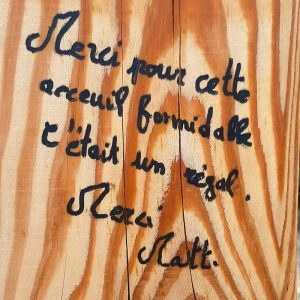 Merci pour cette
acceuil formidable
c'était un régal.
Merci
Matt.